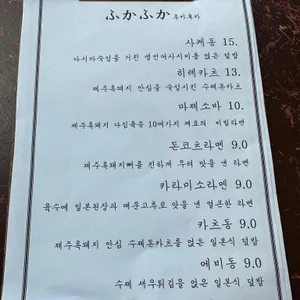 ふかふか 후카후카
사케동 15.
다시마숙성을 거친 생연어사시미를 얹은 덮밥
히레카츠 13.
제주흑돼지 안심을 숙성시킨 수제돈카츠
마제소바 10.
제주흑돼지 다짐육등 10여가지 재료의 비빔라멘
돈코츠라멘 9.0
제주흑돼지뼈를 진하게 우려 맛을 낸 라멘
카라미소라멘 9.0
육수에 일본된장과 매운고추로 맛을 낸 얼큰한 라멘
카츠동 9.0
제주흑돼지 안심 수제돈카츠를 얹은 일본식 덮밥
에비동 9.0
수제 새우튀김을 얹은 일본식 덮밥